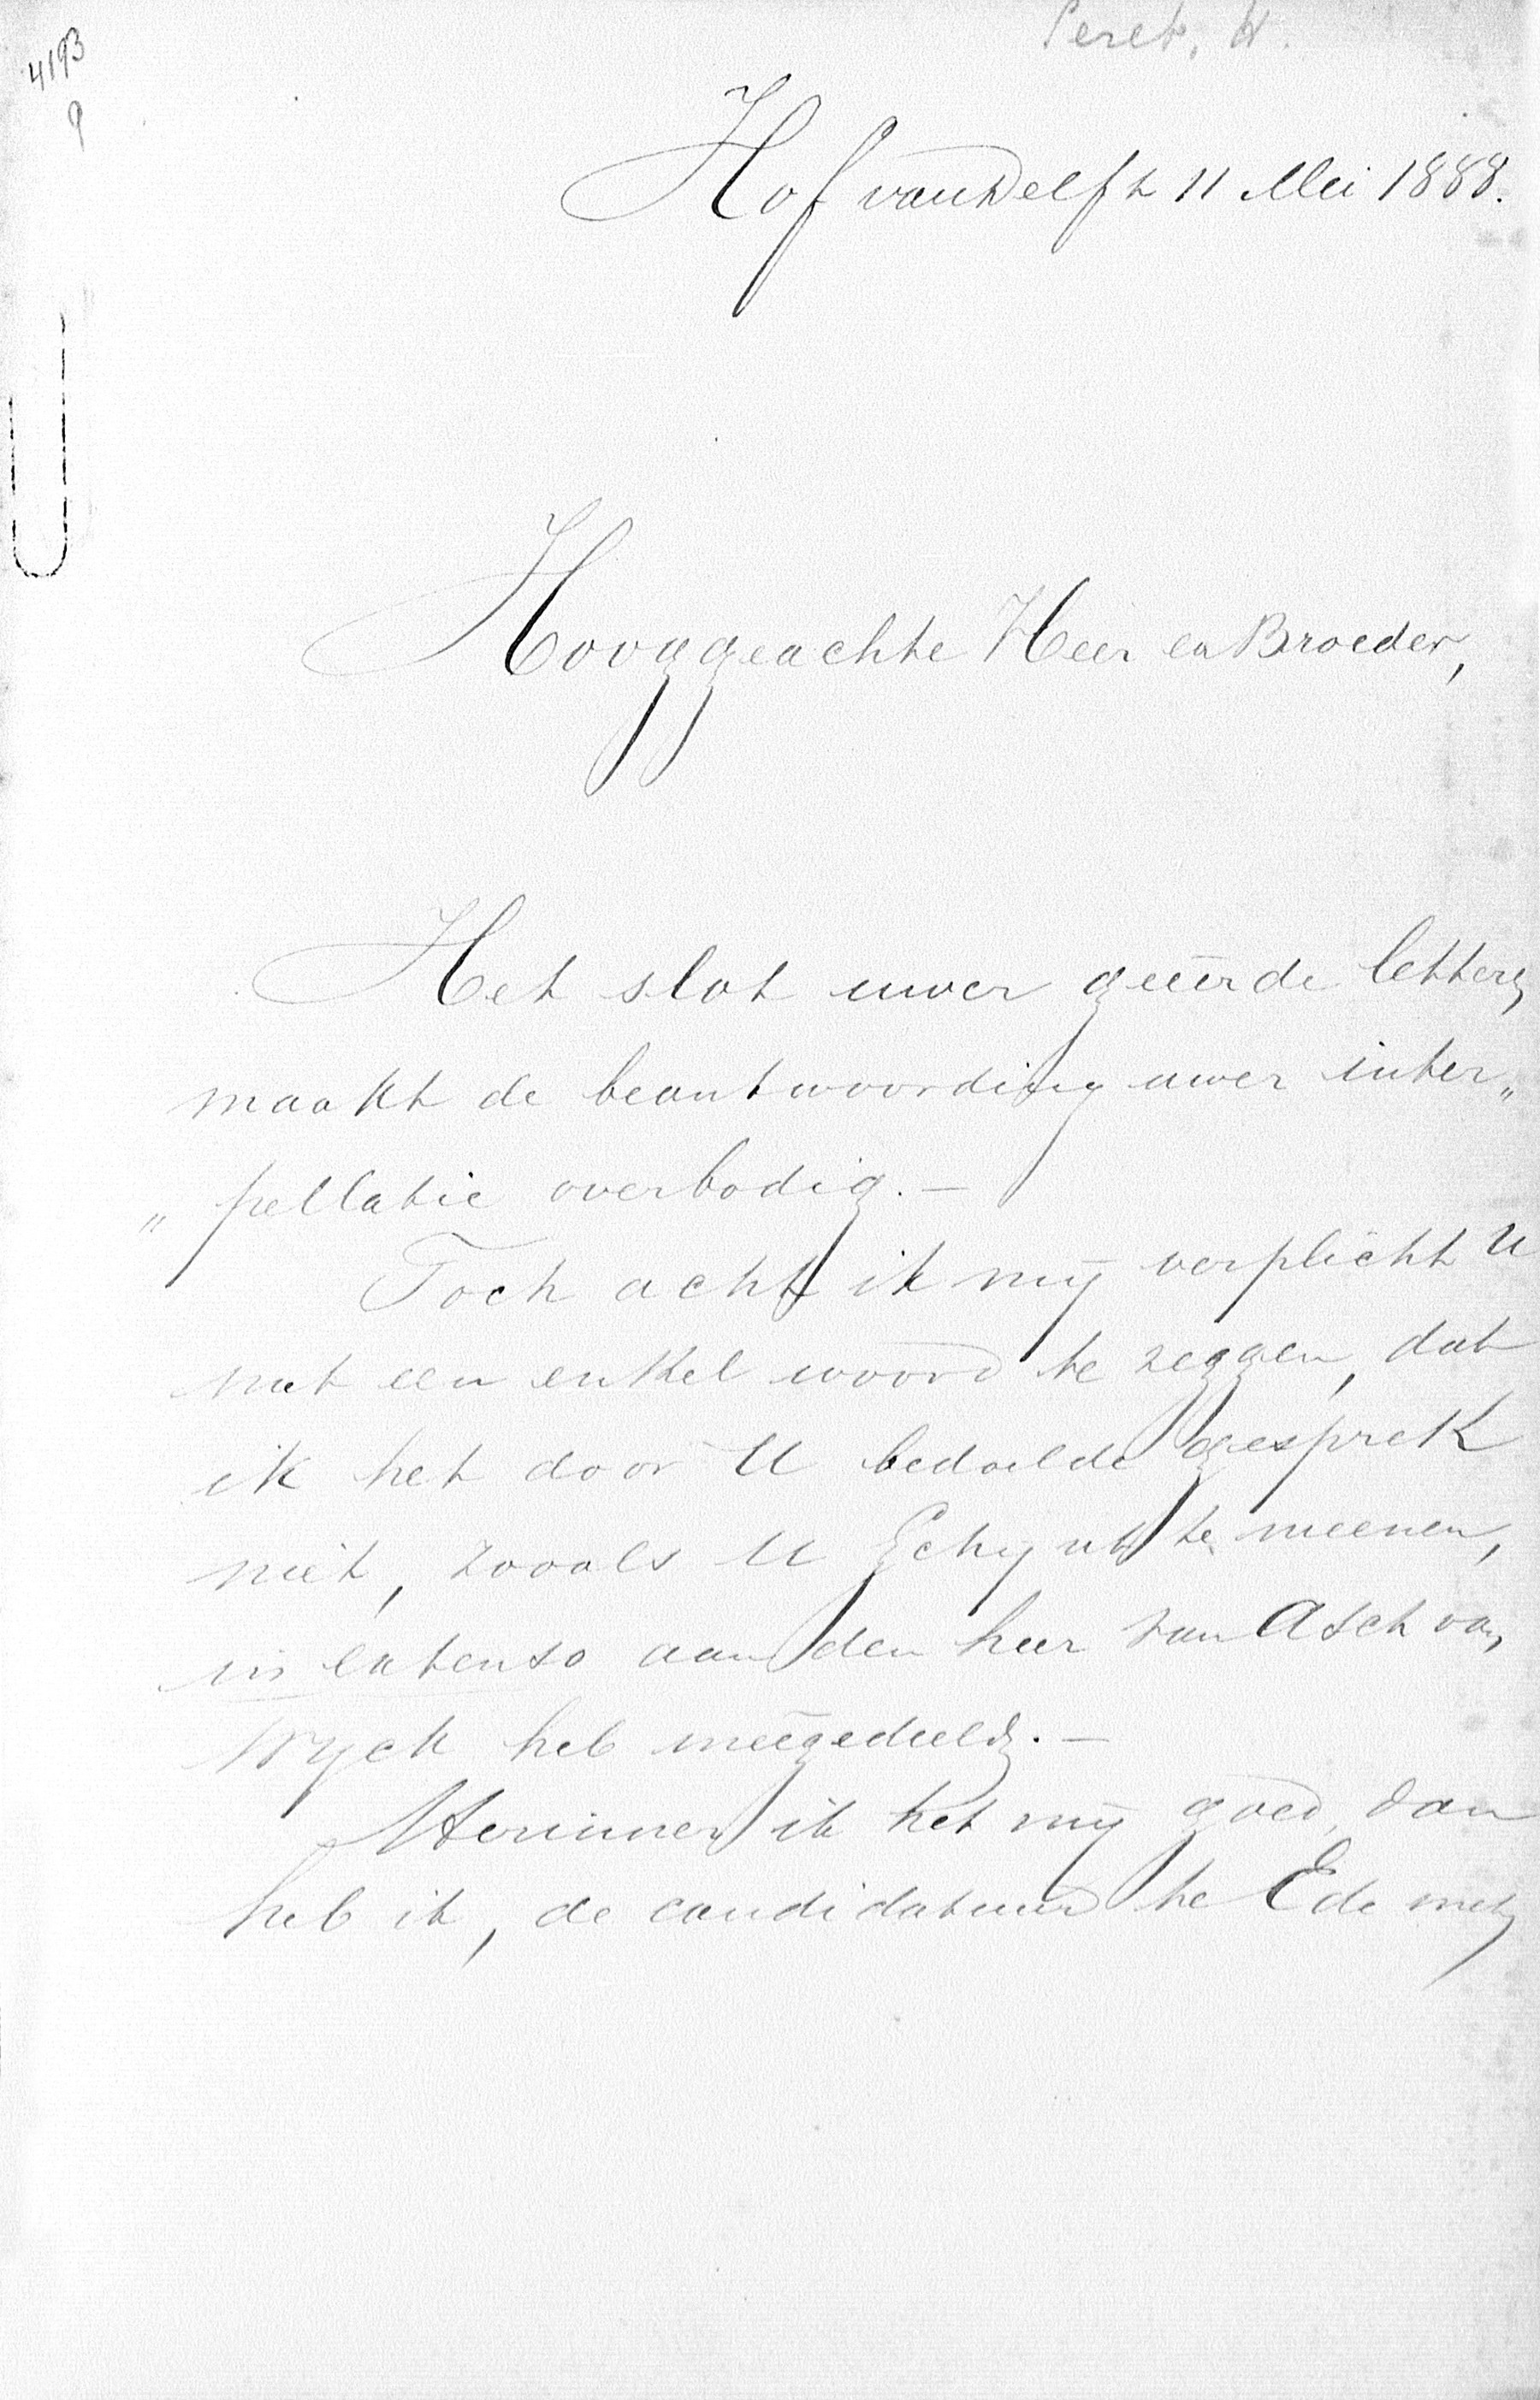 4193
Hof van Delft 11 Mei 1888.
Hooggeachte Heer en Broeder,
Het slot uwer geëerde letteren
maakt de beantwoording uwer inter„
„pellatie overbodig. —
Toch acht ik mij verplicht U
met een enkel woord te zeggen, dat
ik het door U bedoelde gesprek
niet, zooals U schijnt te meenen,
in extenso aan den heer van Asch van
Wyck heb meêgedeeld. —
Herinner ik het mij goed, dan
heb ik, de candidatuur te Ede met